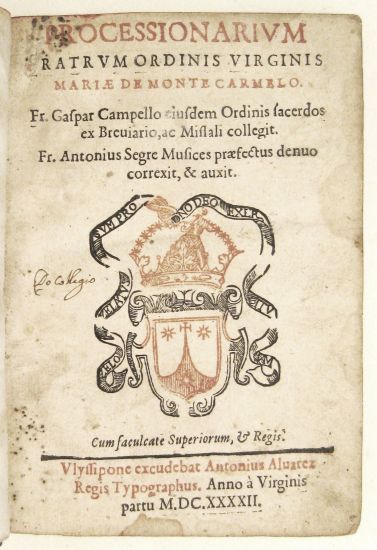 PROCESSIONARIVM
RATRVM ORDINIS VIRGINIS
MARIÆ DE MONTE CARMELO.
Fr. Gaspar Campello eiusdem Ordinis sacerdos
ex Breuiario, ac Missali collegit.
Fr. Antonius Segre Musices præfectus denuo
correxit, & auxit.
PRO
NO DEO EXER
Do Collegio
Cum facultate Superiorum, & Regis.
Vlyssipone excudebat Antonius Aluarez
Regis Typographus. Anno à Virginis
partu M.DC.XXXXII.